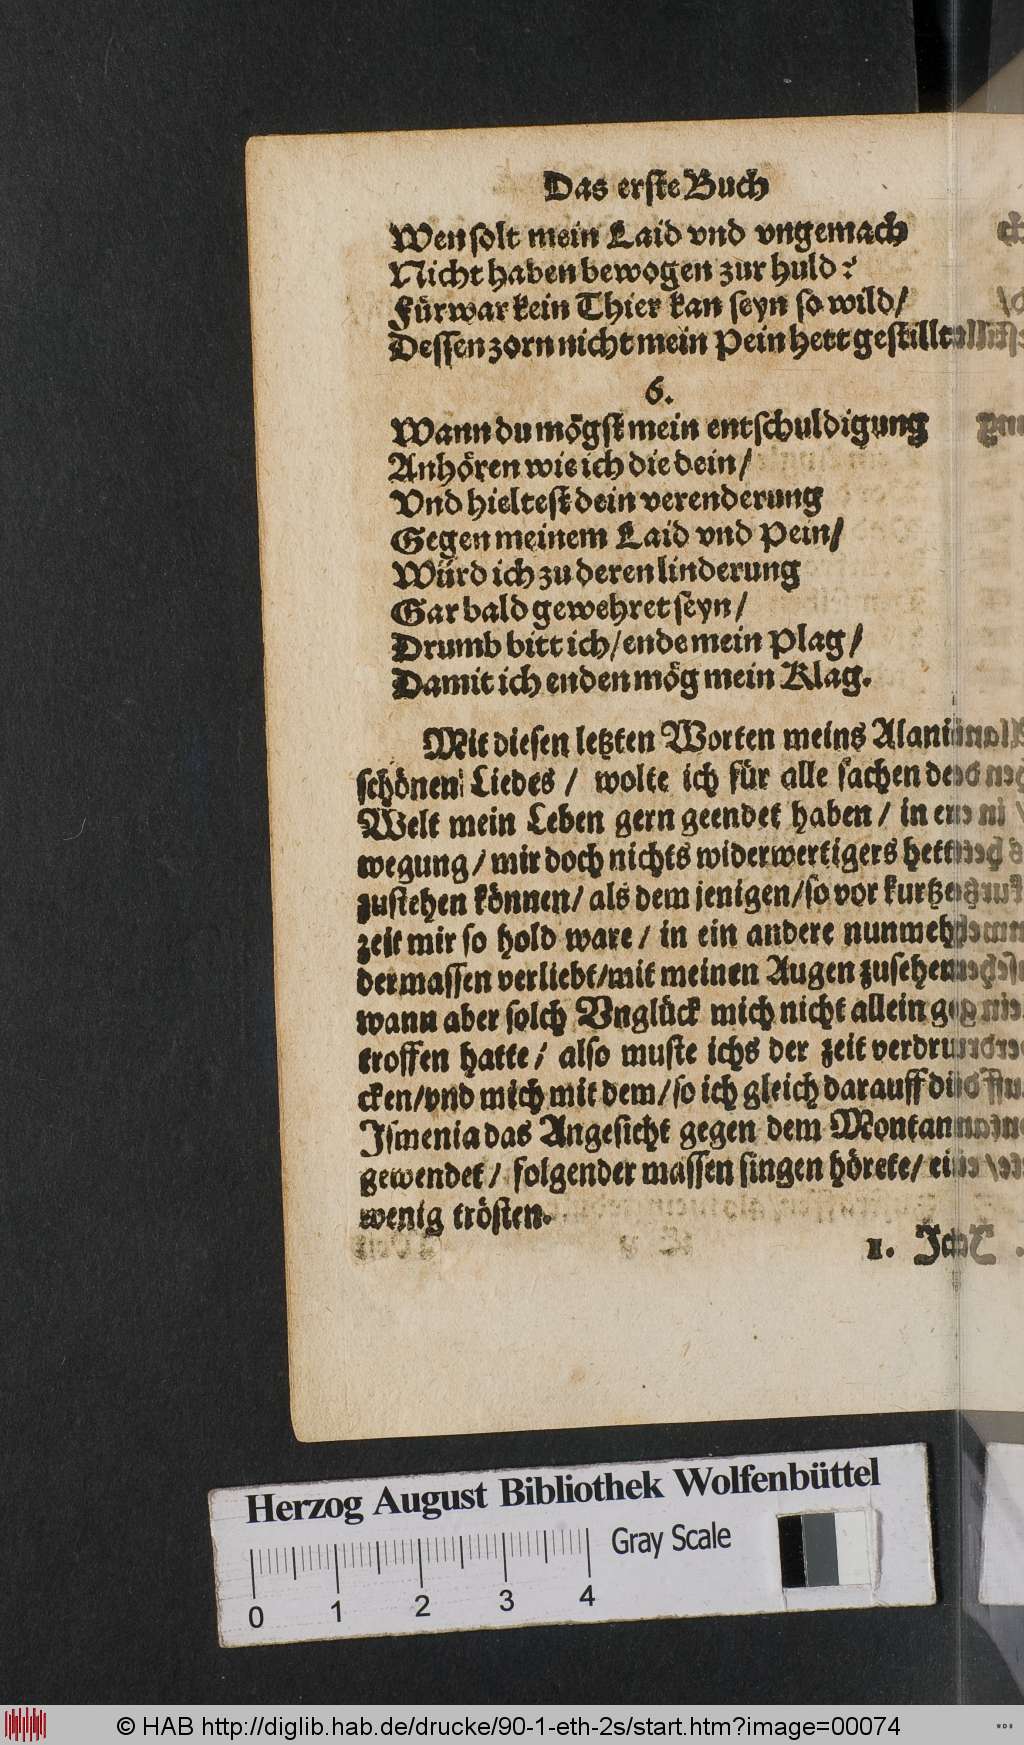 Das erste Buch
Wen solt mein Laid vnd vngemach
Nicht haben bewogen zur huld?
Fürwar kein Thier kan seyn so wild/
Dessen zorn nicht mein Pein hett gestillt
6.
Wann du mögst mein entschuldigung
Anhören wie ich die dein/
Vnd hieltest dein verenderung
Gegen meinem Laid vnd Pein/
Würd ich zu deren linderung
Gar bald gewehret seyn/
Drumb bitt ich/ ende mein Plag/
Damit ich enden mög mein Klag.
Mit diesen letzten Worten meins Alanii
schönen Liedes / wolte ich für alle sachen der
Welt mein Leben gern geendet haben / in er
wegung / mir doch nichts widerwertigers hett
zustehen können/ als dem jenigen/ so vor kurtzer
zeit mir so hold ware / in ein andere nunmehr
dermassen verliebt/mit meinen Augen zusehen
wann aber solch Vnglück mich nicht allein ge
troffen hatte / also muste ichs der zeit verdru
cken/vnd mich mit dem/ so ich gleich darauff die
Ismenia das Angesicht gegen dem Montan
gewendet / folgender massen singen hörete/ ein
wenig trösten.
1. Ich
Herzog August Bibliothek Wolfenbüttel
Gray Scale
0 1 2 3 4
© HAB http://diglib.hab.de/drucke/90-1-eth-2s/start.htm?image=00074